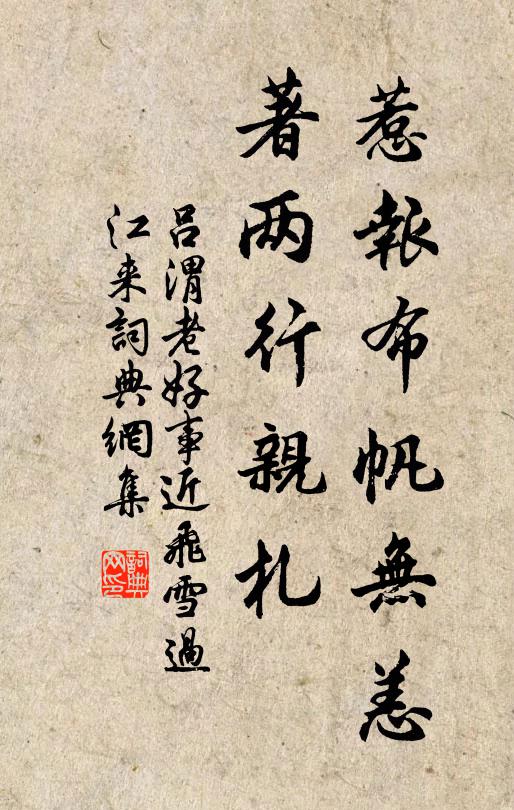 惹報布帆無恙
著两行親札
吕渭老好事近飛雪過
江来詞典網集
詞典
网印